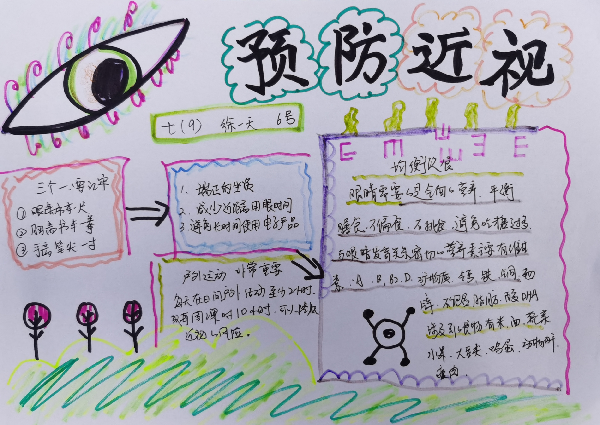 预防近视
七(9) 徐一天 6号
三个一要记牢
① 眼离书本一尺
② 胸离书本一拳
③ 手离笔尖一寸
1. 端正的坐姿
2. 减少近距离用眼时间
3. 避免长时间使用电子产品
户外运动 非常重要
每天在日间户外活动至少2小时.
或每周累计10小时,可以降低
近视的风险.
E E E E E
均衡饮食
眼睛需要的是全面的营养.平衡
膳食.不偏食.不挑食.避免吃糖过多
与眼睛发育关系密切的营养素主要有维生
素.A.B.B2.D.动物质.锌.铁.铜.和
硒.不饱和脂肪酸DHA
涉及到食物有米.面.蔬菜
水果.大豆类.鸡蛋.动物肝.
瘦肉.